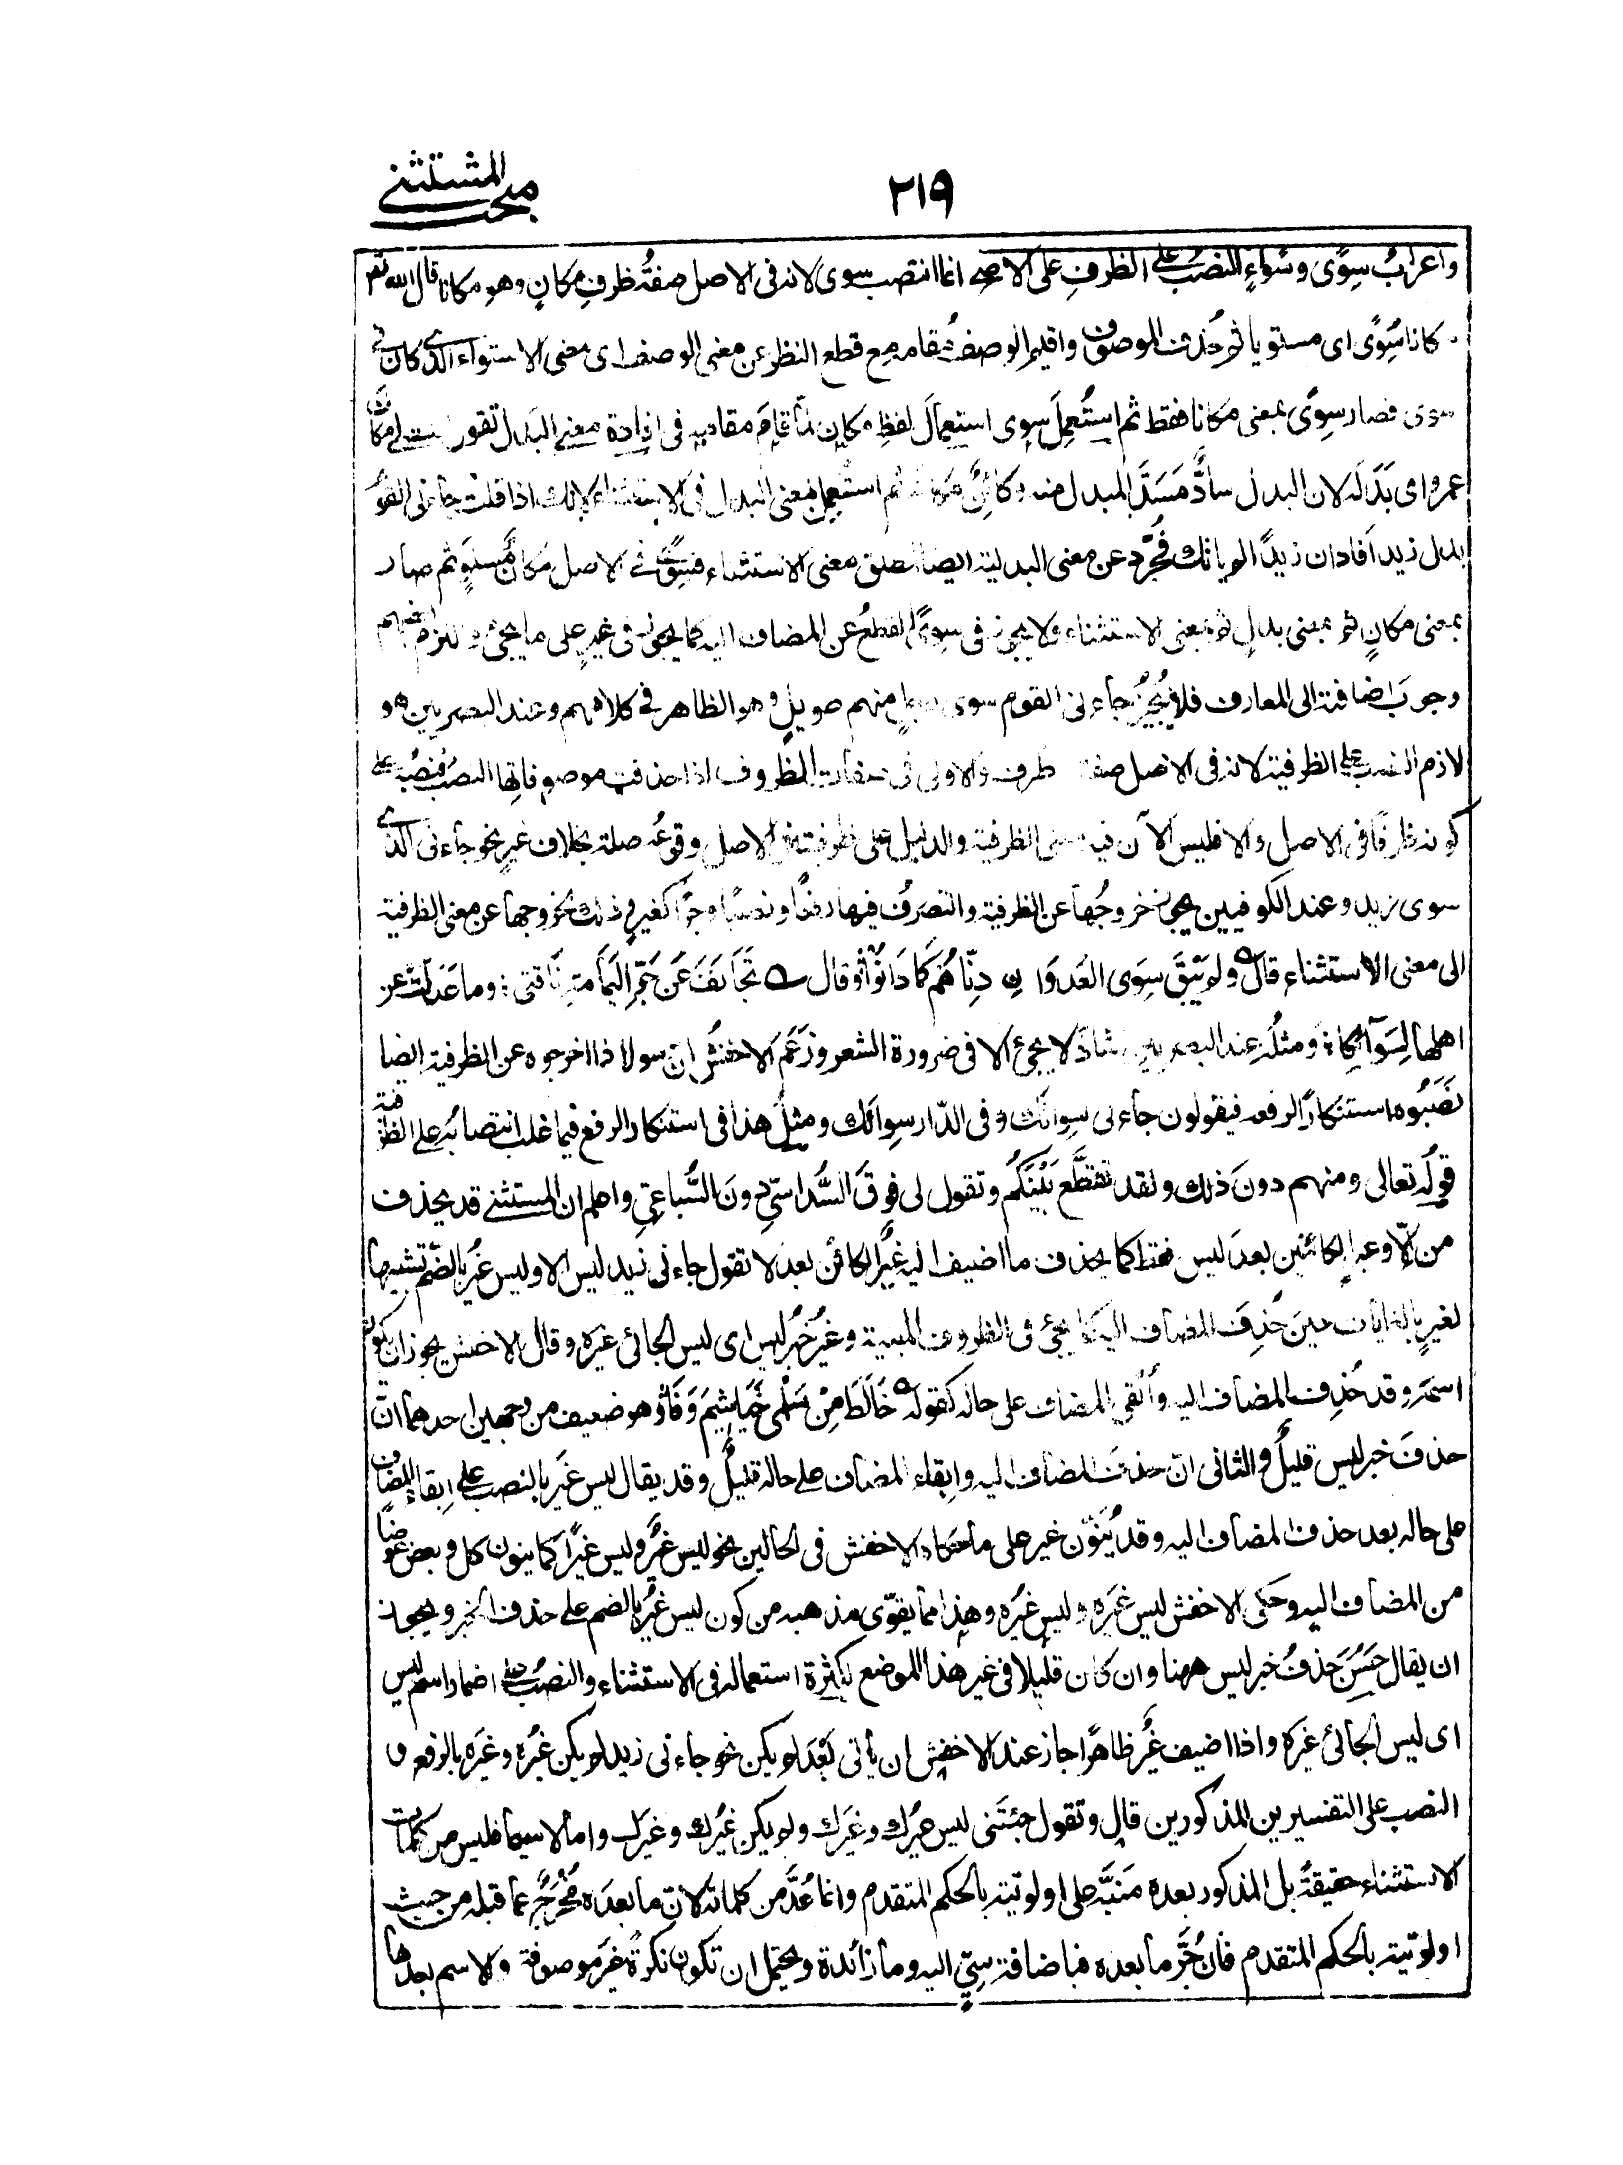 مبحث المستثنى
٢١٩
واعرابُ سِوًى وسَواءٍ النصبُ على الظرفِ على الاصح انما انتصب سوى لانه فى الاصل صفةُ ظرفِ مكانٍ وهو مكانا قال الله تعـ
مكانا سُوًى اى مستويا ثم حُذف الموصوف واقيم الوصفُ مقامه مع قطع النظر عن معنى الوصف اى معنى الاستواء الذى كان فى
سوى فصار سِوًى بمعنى مكانا فقط ثم استُعمِلَ سوى استعمالَ لفظِ مكان لمّا قامَ مقامه فى افادة معنى البدل تقول مكان
عمرو اى بَدَلَه لان البدل سادٌّ مَسَدَّ المبدل منه وكائنٌ مكانه ثم استُعمِل بمعنى البدل فى الاستثناء لانك اذا قلت جاءنى القوم
بدل زيد افاد ان زيدًا لم ياتك فجُرِّد عن معنى البدلية ايضا لمطلق معنى الاستثناء فسِوًى فى الاصل مكانٌ مستوٍ ثم صار
بمعنى مكانٍ ثم بمعنى بدلٍ ثم بمعنى الاستثناء ولا يجوز فى سوى القطعُ عن المضاف اليه كما يجوز فى غيرٍ على ما يجئ والتزم بعضهم
وجوبَ اضافته الى المعارف فلا يُجيز جاءنى القوم سوى رجلٍ منهم طويلٍ وهو الظاهر فى كلامهم وعند البصريين هو
لازم النصب على الظرفية لانه فى الاصل صفة ظرف والاولى فى صفات الظروف اذا حذفت موصوفاتها النصب فنصبُه على
كونه ظرفًا فى الاصل والا فليس الآن فيه معنى الظرفية والدليل على ظرفيته فى الاصل وقوعُه صلة بخلاف غيرٍ نحو جاءنى الذى
سوى زيد وعند الكوفيين يجوز خروجُها عن الظرفية والتصرفُ فيها رفعًا ونصبًا وجرًّا كغيرٍ وذلك لخروجها عن معنى الظرفية
الى معنى الاستثناء قال ولم يَبْقَ سِوَى العُدْوَانِ دِنَّاهُمْ كَمَا دَانُوْا وقال تَجَانَفُ عَنْ جَوِّ الْيَمَامَةِ نَاقَتِى ؛ وما عَدَلَتْ عن
اهلها لِسَوَائِكَا ؛ ومثلُه عند البصريين شاذ لا يجئ الا فى ضرورة الشعر وزَعَمَ الاخفشُ انّ سواء اذا اخرجوه عن الظرفية ايضا
نَصَبُوه استنكارًا لرفعه فيقولون جاءنى سِوائَك وفى الدّار سِوائَك ومثلُ هذا فى استنكار الرفع فيما غلب انتصابُه على الظرفية
قولُه تعالى ومنهم دونَ ذلك ولقد تقطَّع بَيْنَكُمْ وتقول لى فوقَ السُّداسىِّ دونَ السُّباعىِّ واعلم ان المستثنى قد يحذف
من إلّا وغيرٍ الكائنين بعدَ ليس فقط كما يحذف ما اضيف اليه غيرُ الكائن بعد لا تقول جاءنى زيد ليس الا وليس غيرُ بالضم تشبيها
لغيرٍ بالغايات حين حُذِف المضاف اليه كما يجئ فى الظروف المبنية وغيرُ خبر ليس اى ليس الجائى غيرَه وقال الاخفش يجوز ان يكون
اسمَه وقد حُذِف المضاف اليه وأُبقى المضاف على حاله كقوله خَالَطَ مِنْ سَلْمَى خَيَاشِيمَ وَفَا وهو ضعيف من وجهين احدهما انّ
حذفَ خبر ليس قليلٌ والثانى انّ حذف المضاف اليه وابقاء المضاف على حاله قليلٌ وقد يقال ليس غيرَ بالنصب على ابقاء المضاف
على حاله بعد حذف المضاف اليه وقد يُنَوَّن غير على ما حكاه الاخفش فى الحالين نحو ليس غيرٌ وليس غيرًا كما ينون كل وبعض عوضًا
من المضاف اليه وحكى الاخفش ليس غيرَه وليس غيرُه وهذا مما يقوّى مذهبه من كون ليس غيرُ بالضم على حذف الخبر ويجوز
ان يقال حَسُنَ حذفُ خبر ليس ههنا وان كان قليلا فى غير هذا الموضع لكثرة استعماله فى الاستثناء والنصبُ على اضمار اسم ليس
اى ليس الجائى غيرَه واذا اضيف غيرٌ ظاهرًا جاز عند الاخفش ان يأتى بَعْدَ لم يكن نحو جاءنى زيد لم يكن غيرُه وغيرَه بالرفع و
النصب على التفسيرين المذكورين قال وتقول جئتَنى ليس غيرُك وغيرَك ولم يكن غيرُك وغيرَك واما لاسيّما فليس من كلمات
الاستثناء حقيقةً بل المذكور بعده منبَّه على اولويته بالحكم المتقدم وانما عُدَّ من كلماته لانّ ما بعدَه مُخْرَجٌ عما قبله من حيث
اولويته بالحكم المتقدم فان جُرَّ ما بعده فباضافة سِىّ اليه وما زائدة ويحتمل ان تكون نكرةً غيرَ موصوفة والاسم بعدها